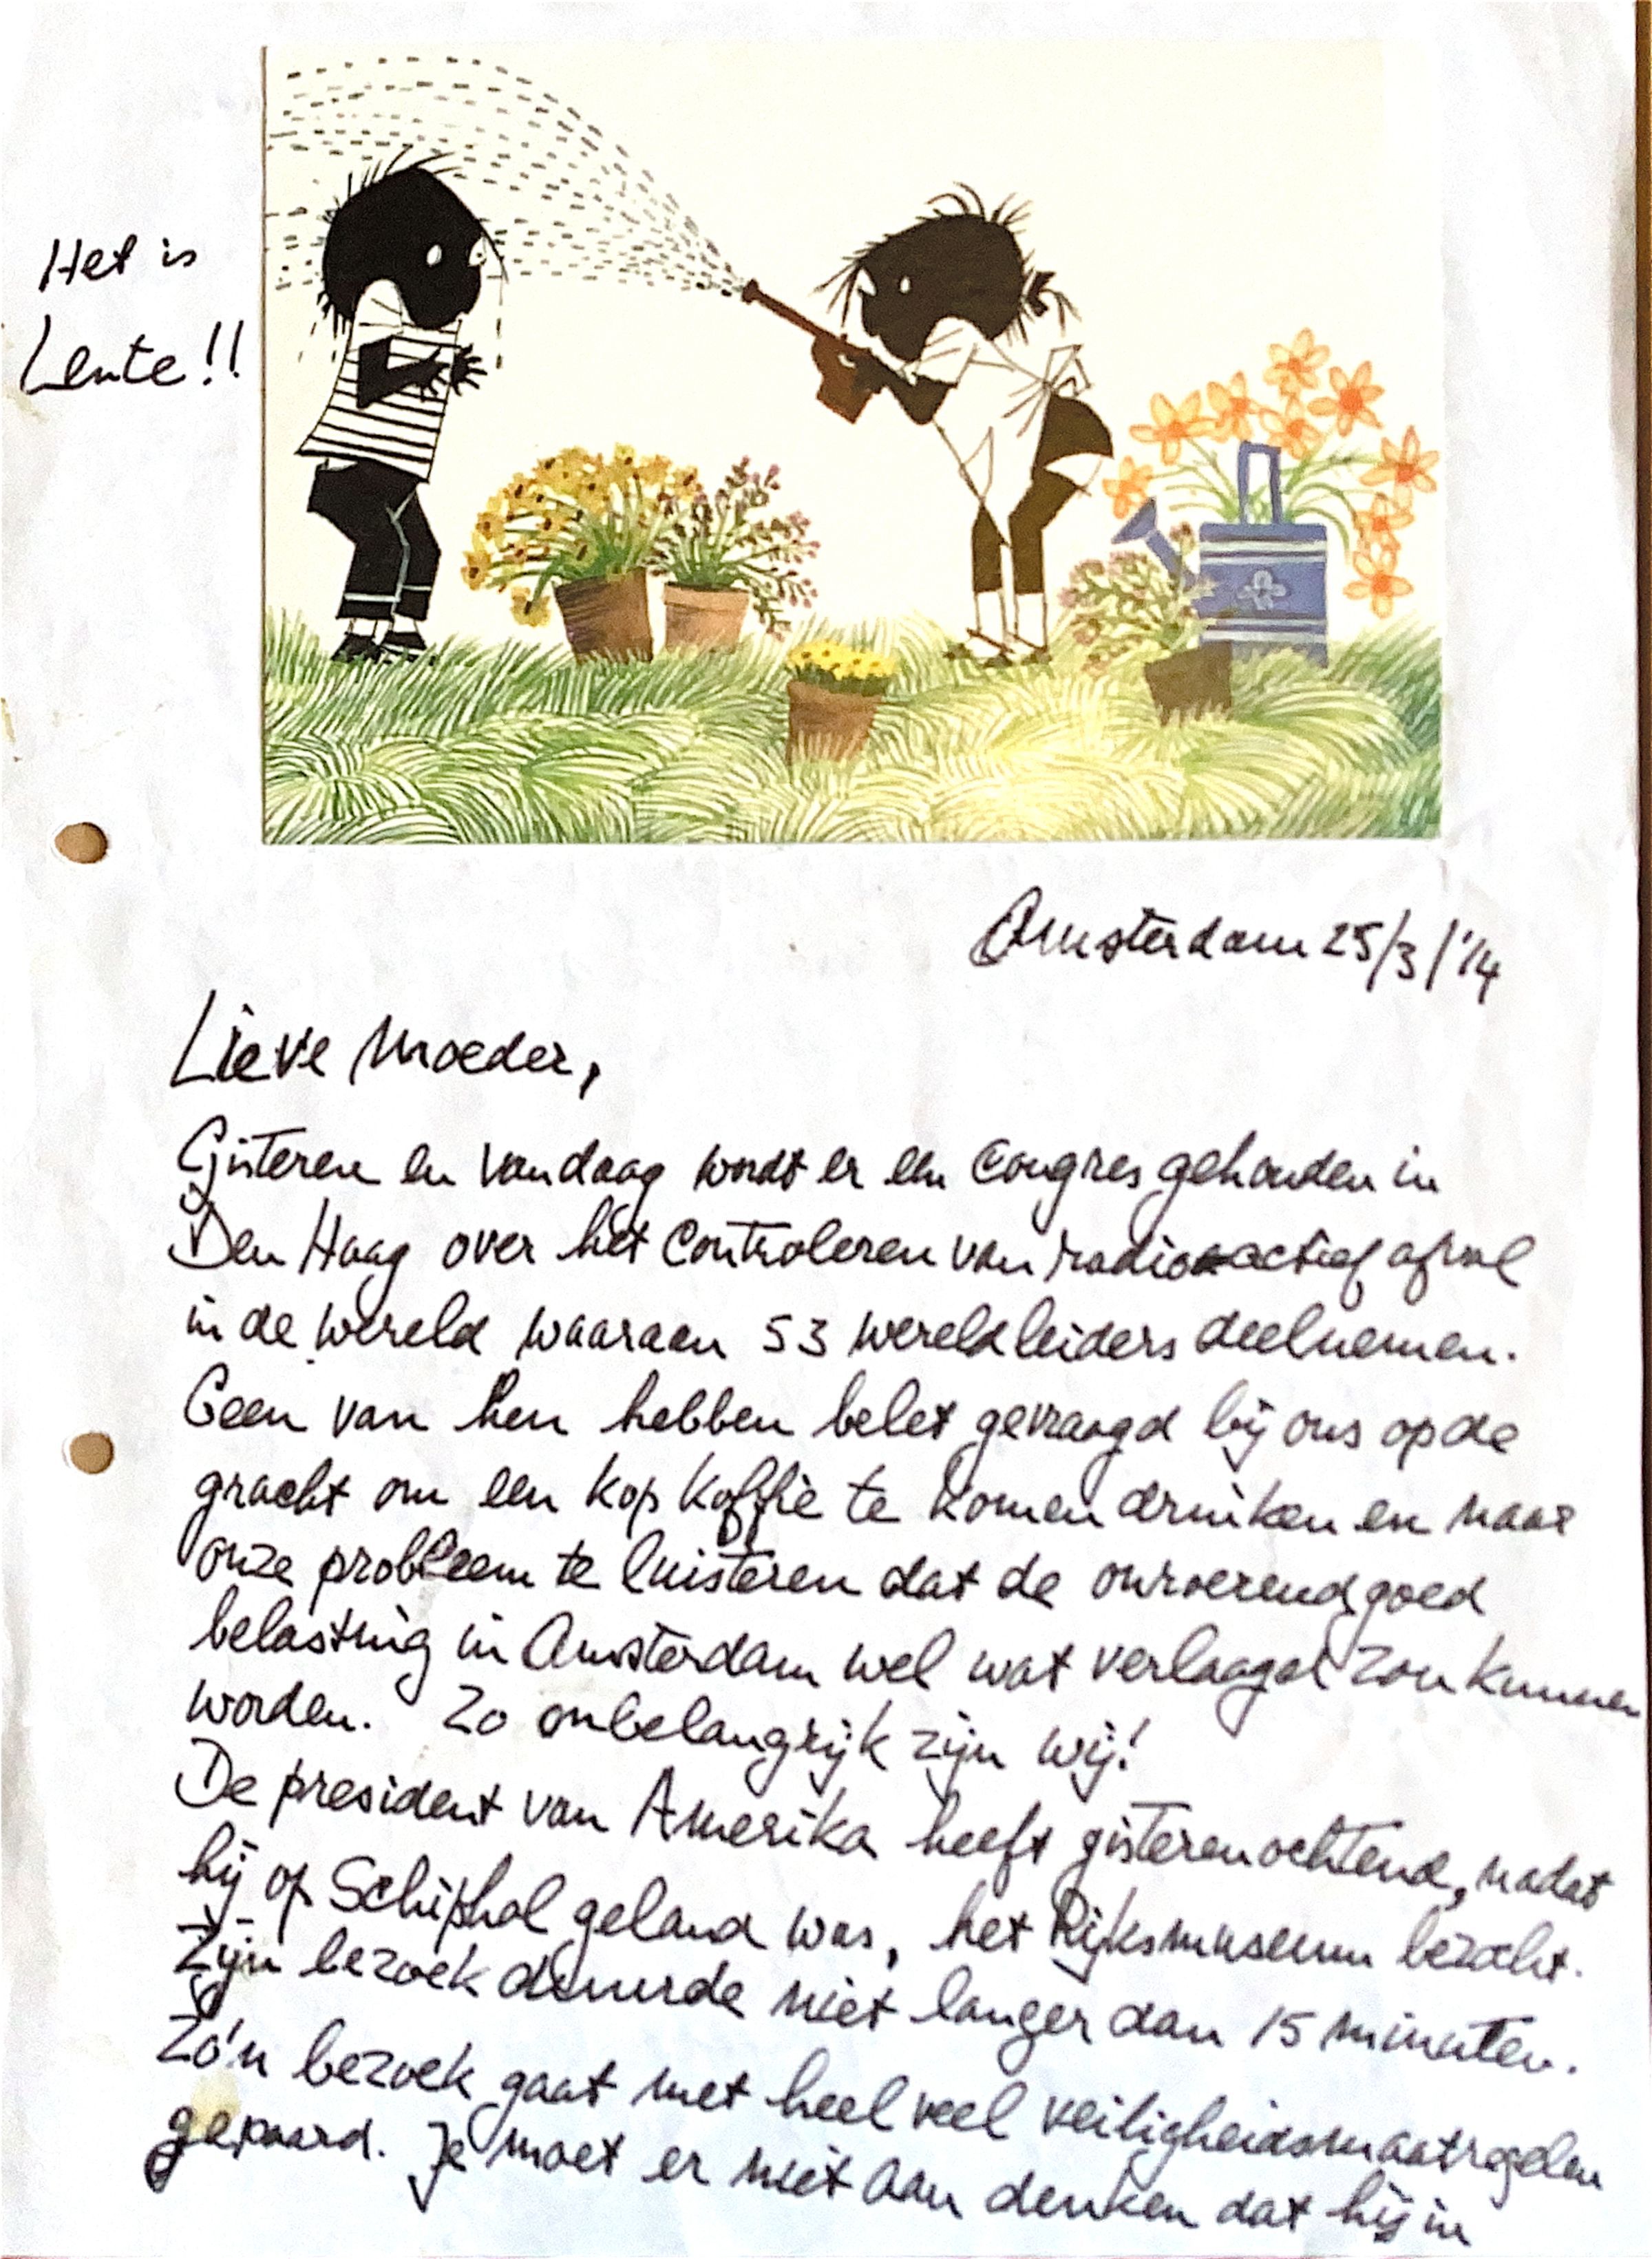 Het is
Lente!!
Amsterdam 25/3/'14
Lieve Moeder,
Gisteren en vandaag wordt er een congres gehouden in
Den Haag over het controleren van radioactief afval
in de wereld waaraan 53 wereldleiders deelnemen.
Geen van hen hebben belet gevraagd bij ons op de
gracht om een kop koffie te komen drinken en naar
onze probleem te luisteren dat de onroerend goed
belasting in Amsterdam wel wat verlaagd zou kunnen
worden. Zo onbelangrijk zijn wij!
De president van Amerika heeft gisterenochtend, nadat
hij op Schiphol geland was, het Rijksmuseum bezocht.
Zijn bezoek duurde niet langer dan 15 minuten.
Zo'n bezoek gaat met heel veel veiligheidsmaatregelen
gepaard. Je moet er niet aan denken dat hij in